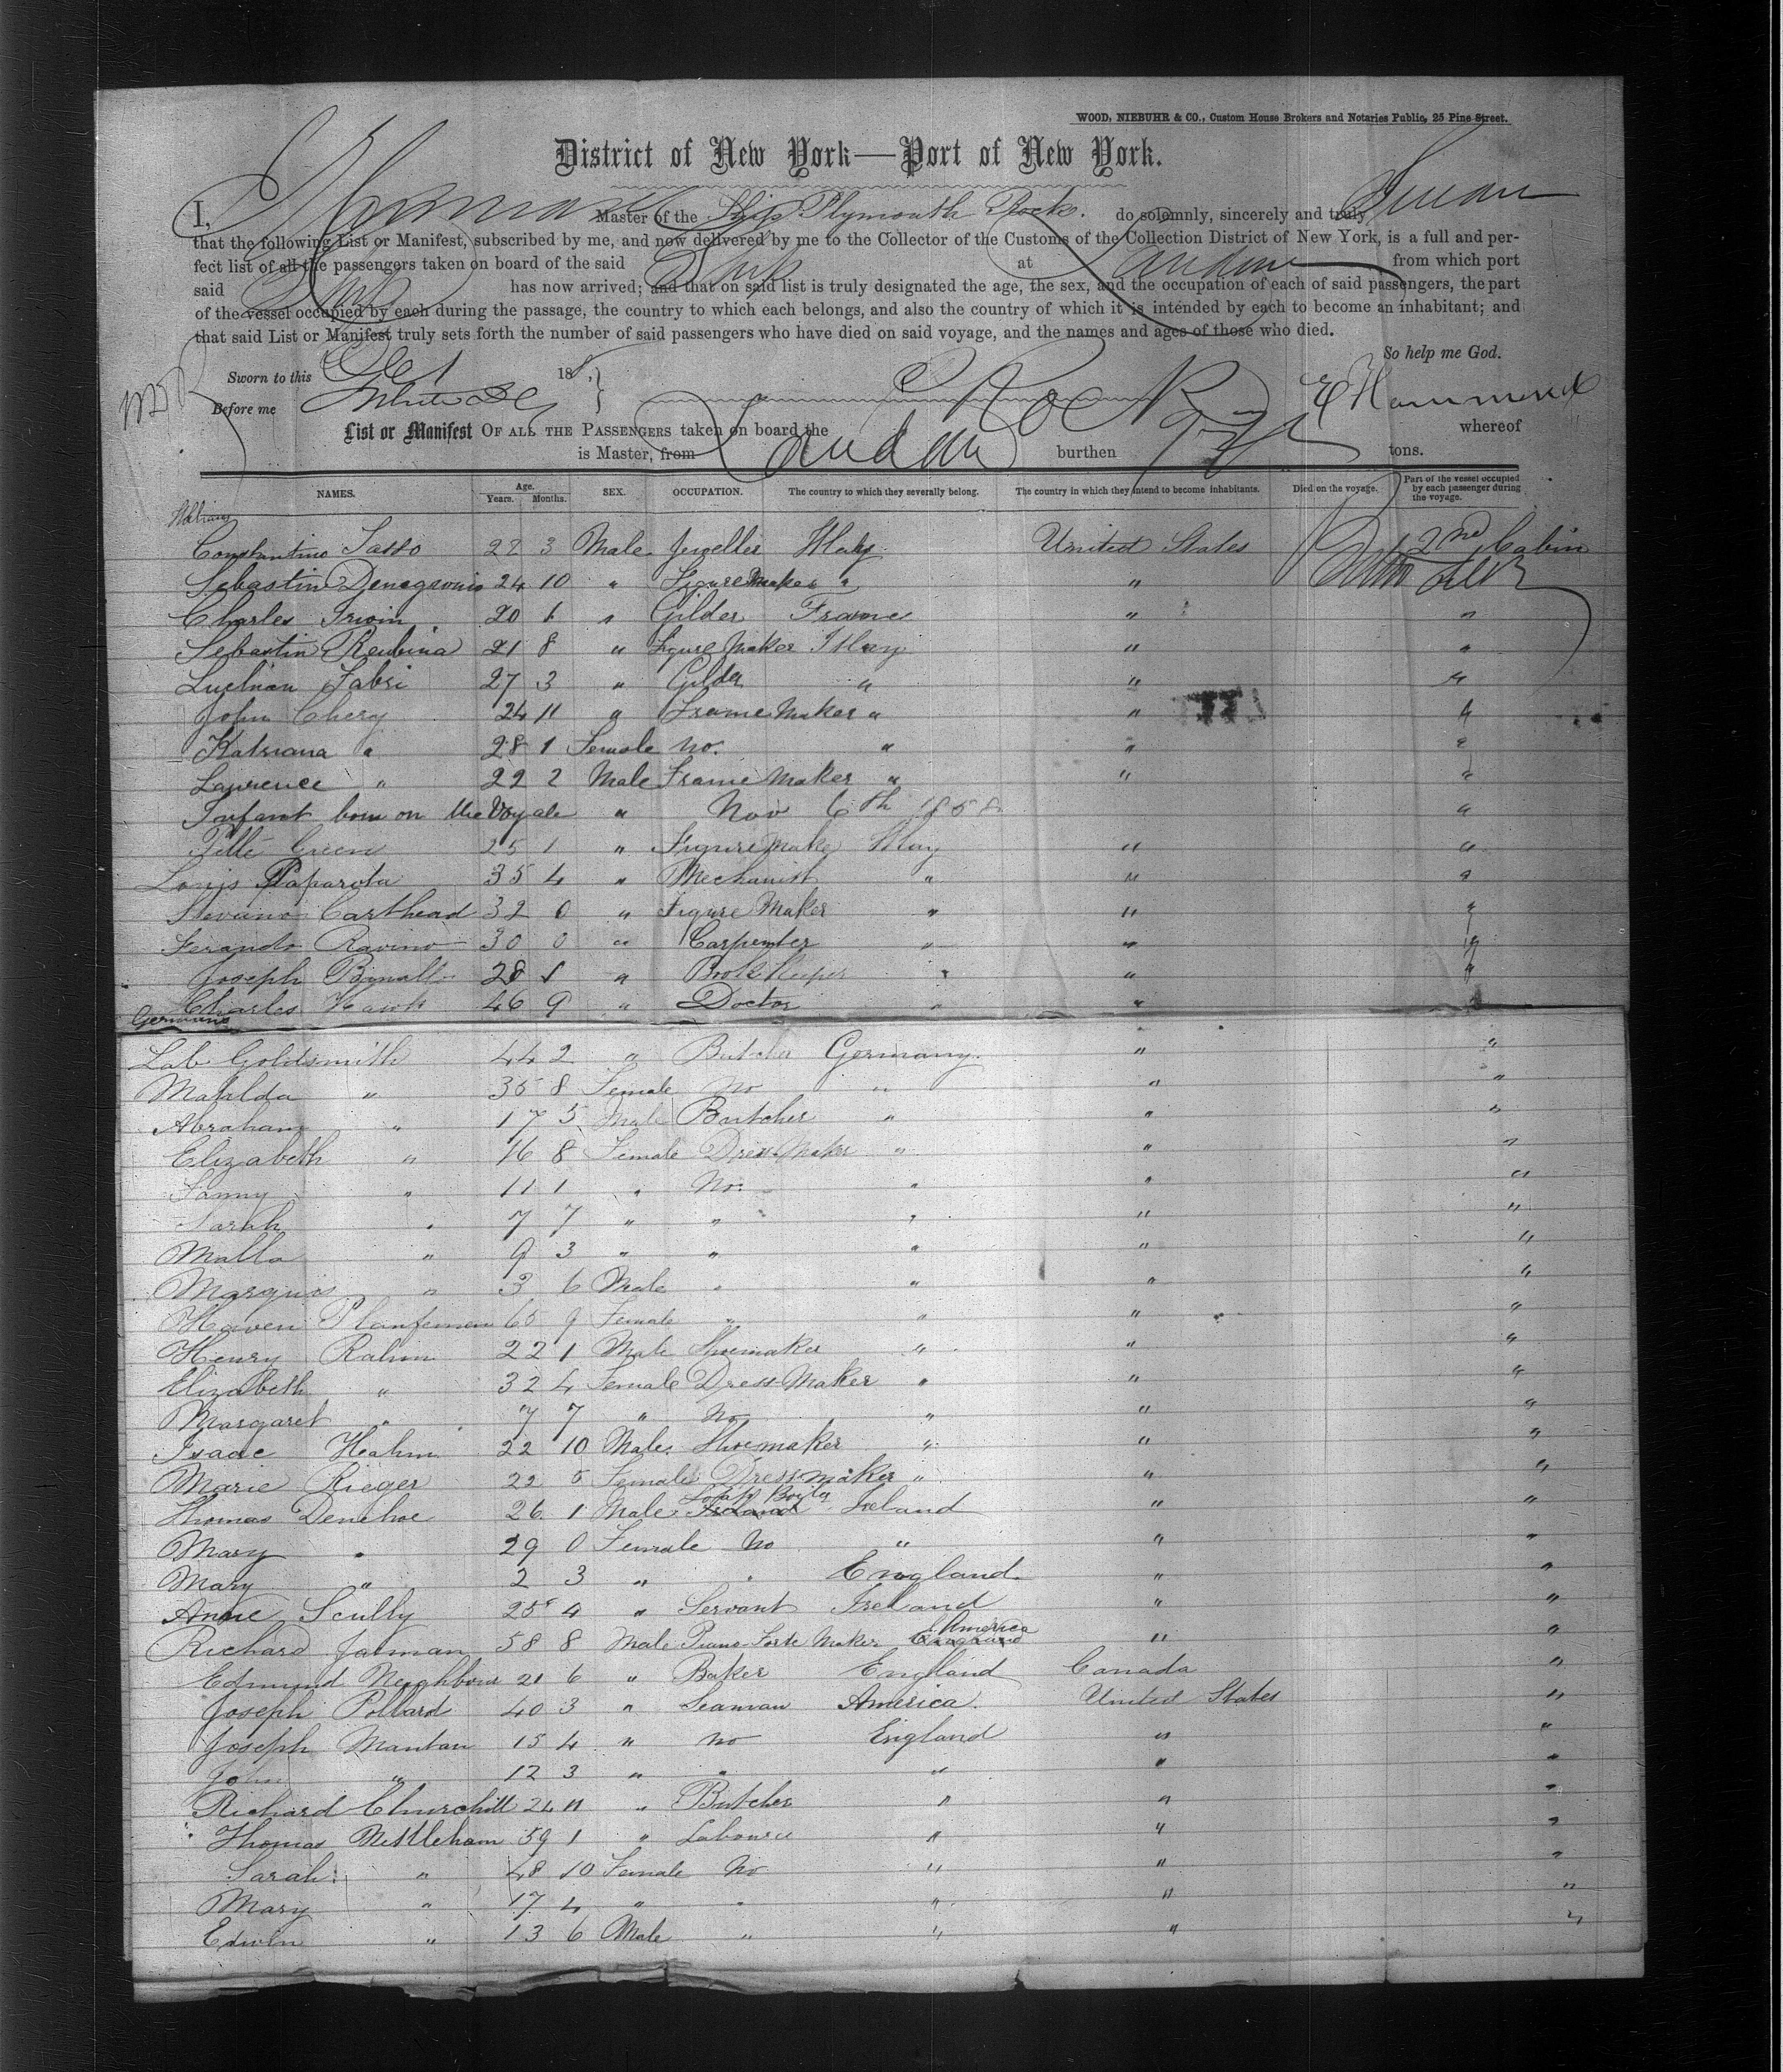 WOOD, NIEBUHR & CO., Custom House Brokers and Notaries Public, 25 Pine Street.
District of New York—Port of New York.
I, Master of the Ship Plymouth Rock. do solemnly, sincerely and truly Swear
that the following List or Manifest, subscribed by me, and now delivered by me to the Collector of the Customs of the Collection District of New York, is a full and per-
fect list of all the passengers taken on board of the said Ship at London from which port
said Ship has now arrived; and that on said list is truly designated the age, the sex, and the occupation of each of said passengers, the part
of the vessel occupied by each during the passage, the country to which each belongs, and also the country of which it is intended by each to become an inhabitant; and
that said List or Manifest truly sets forth the number of said passengers who have died on said voyage, and the names and ages of those who died.
So help me God.
Sworn to this 18
Before me E Hammond
List or Manifest OF ALL THE PASSENGERS taken on board the P Rock whereof
is Master, from London burthen tons.
NAMES. Age. Years. Months. SEX. OCCUPATION. The country to which they severally belong. The country in which they intend to become inhabitants. Died on the voyage. Part of the vessel occupied by each passenger during the voyage.
Constantino Tasso 22 3 Male Jeweller Italy United States 2nd Cabin
Sebastin 24 10 " Figure Maker " "
Charles Irwin 20 6 " Gilder France " "
Sebastin Reubina 21 8 " Figure Maker Italy " "
Luchian Fabri 27 3 " Gilder " " "
John Chery 24 11 " Frame Maker " " "
Katriana " 28 1 Female No. " " "
Lawrence " 22 2 Male Frame Maker " " "
Infant born on the Voyage " Nov 6th 1858 "
Green 25 1 " Figure Make Italy " "
Louis Paparota 35 4 " Mechanist " " "
Carthead 32 0 " Figure Maker " " "
Ferando Ravino 30 0 " Carpenter " " "
Joseph 28 1 " Book Keeper " " "
Charles 46 9 " Doctor " "
Germans
Lab Goldsmith 44 2 " Butcher Germany. " "
Matilda " 35 8 Female No " " "
Abraham " 17 5 Male Butcher " " "
Elizabeth " 16 8 Female Dress Maker " " "
Fanny " 11 1 " No. " " "
Sarah " 7 7 " " " " "
Malla " 9 3 " " " " "
Marquis " 3 6 Male " " " "
65 9 Female " " " "
Henry Rahm 22 1 Male Shoemaker " " "
Elizabeth " 32 4 Female Dress Maker " " "
Margaret " 7 7 " No " " "
Isaac Heahm 22 10 Male Shoemaker " " "
Marie Rieger 22 5 Female Dressmaker " " "
Thomas Denehoe 26 1 Male Ireland Ireland " "
Mary " 29 0 Female No " " "
Mary " 2 3 " " England " "
Annie Scully 25 4 " Servant Ireland " "
Richard Jarman 58 8 Male Piano-Forte Maker England America " "
Edmund Neighbour 21 6 " Baker England Canada "
Joseph Pollard 40 3 " Seaman America. United States "
Joseph Mantan 15 4 " No England " "
John " 12 3 " " " " "
Richard Churchill 24 11 " Butcher " " "
Thomas Nettleham 59 1 " Labourer " " "
Sarah " 48 10 Female No " " "
Mary " 17 4 " " " " "
Edwin " 13 6 Male " " " "